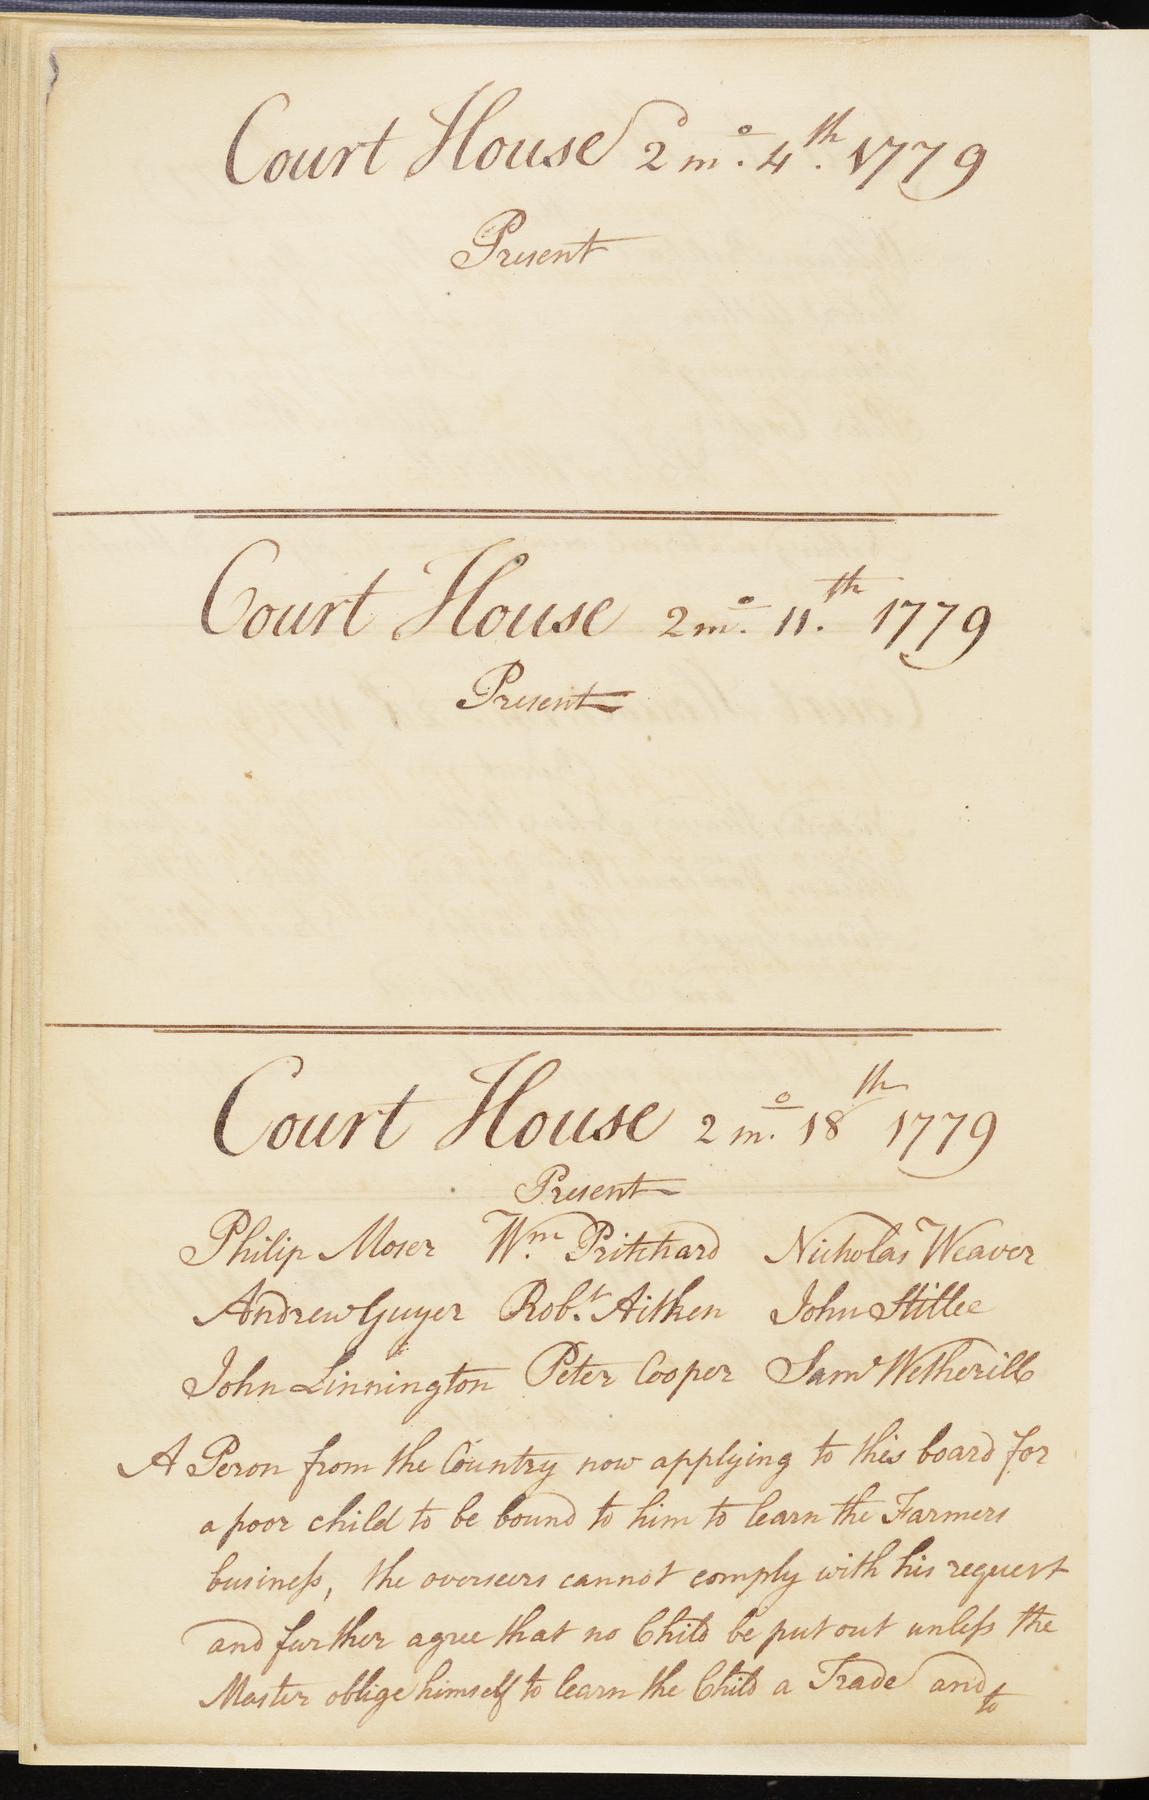 Court House 2 mo. 4th. 1779
Present
Court House 2 mo. 11.th 1779
Present
Court House 2 mo. 18th 1779
Present
Philip Moser Wm. Pritchard Nicholas Weaver
Andrew Guyer Robt. Aitken John Stillee
John Linnington Peter Cooper Saml Wetherill
A Peron from the Country now applying to this board for
a poor child to be bound to him to learn the Farmers
busineſs, the overseers cannot comply with his request
and further agree that no Child be put out unleſs the
Master oblige himself to learn the Child a Trade and
to